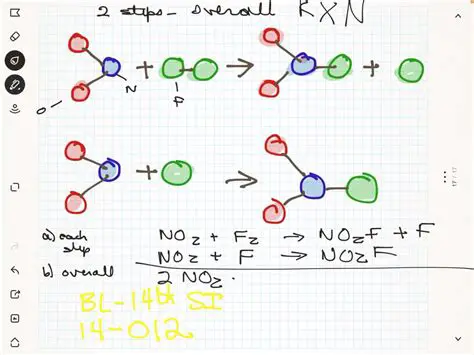 2 steps - overall RXN
+ → +
O N F
+ →
a) each step NO₂ + F₂ → NO₂F + F
NO₂ + F → NO₂F
b) overall 2 NO₂
BL-14th SI
14-012
17/17